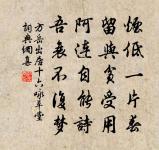 煙低一片春
留與貧受用
阿連自能詩
吾衰不復夢
方岳出居十六詠草堂
詞典網集